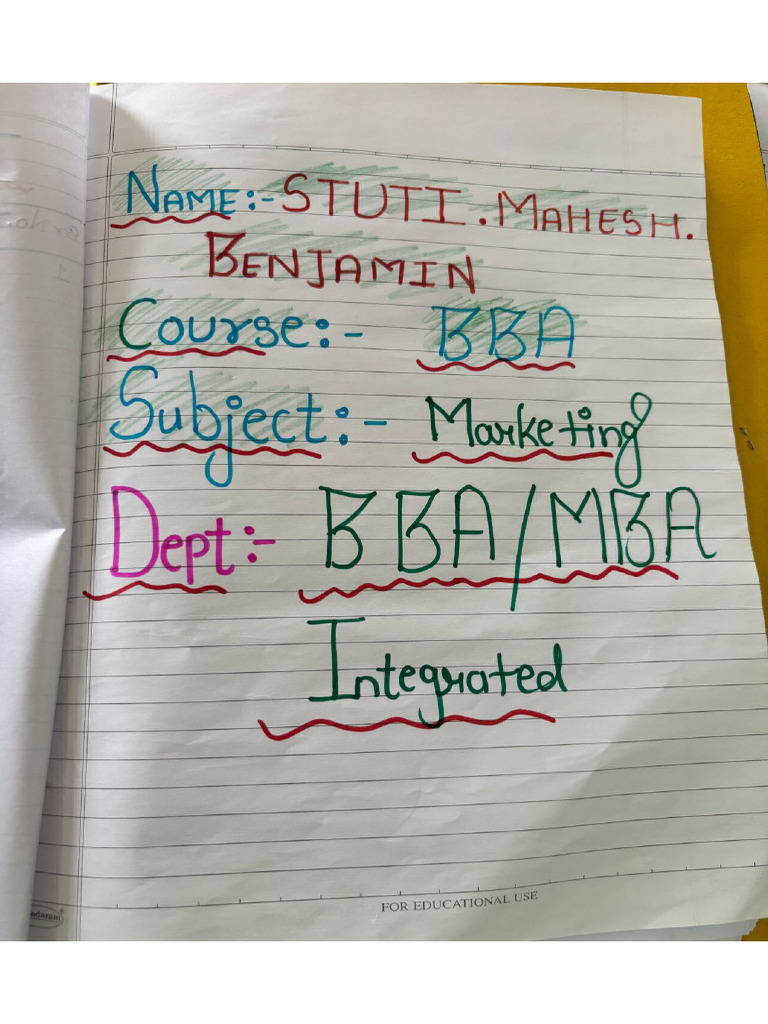 NAME:- STUTI. MAHESH.
BENJAMIN
Course:- BBA
Subject:- Marketing
Dept:- BBA/MBA
Integrated
FOR EDUCATIONAL USE